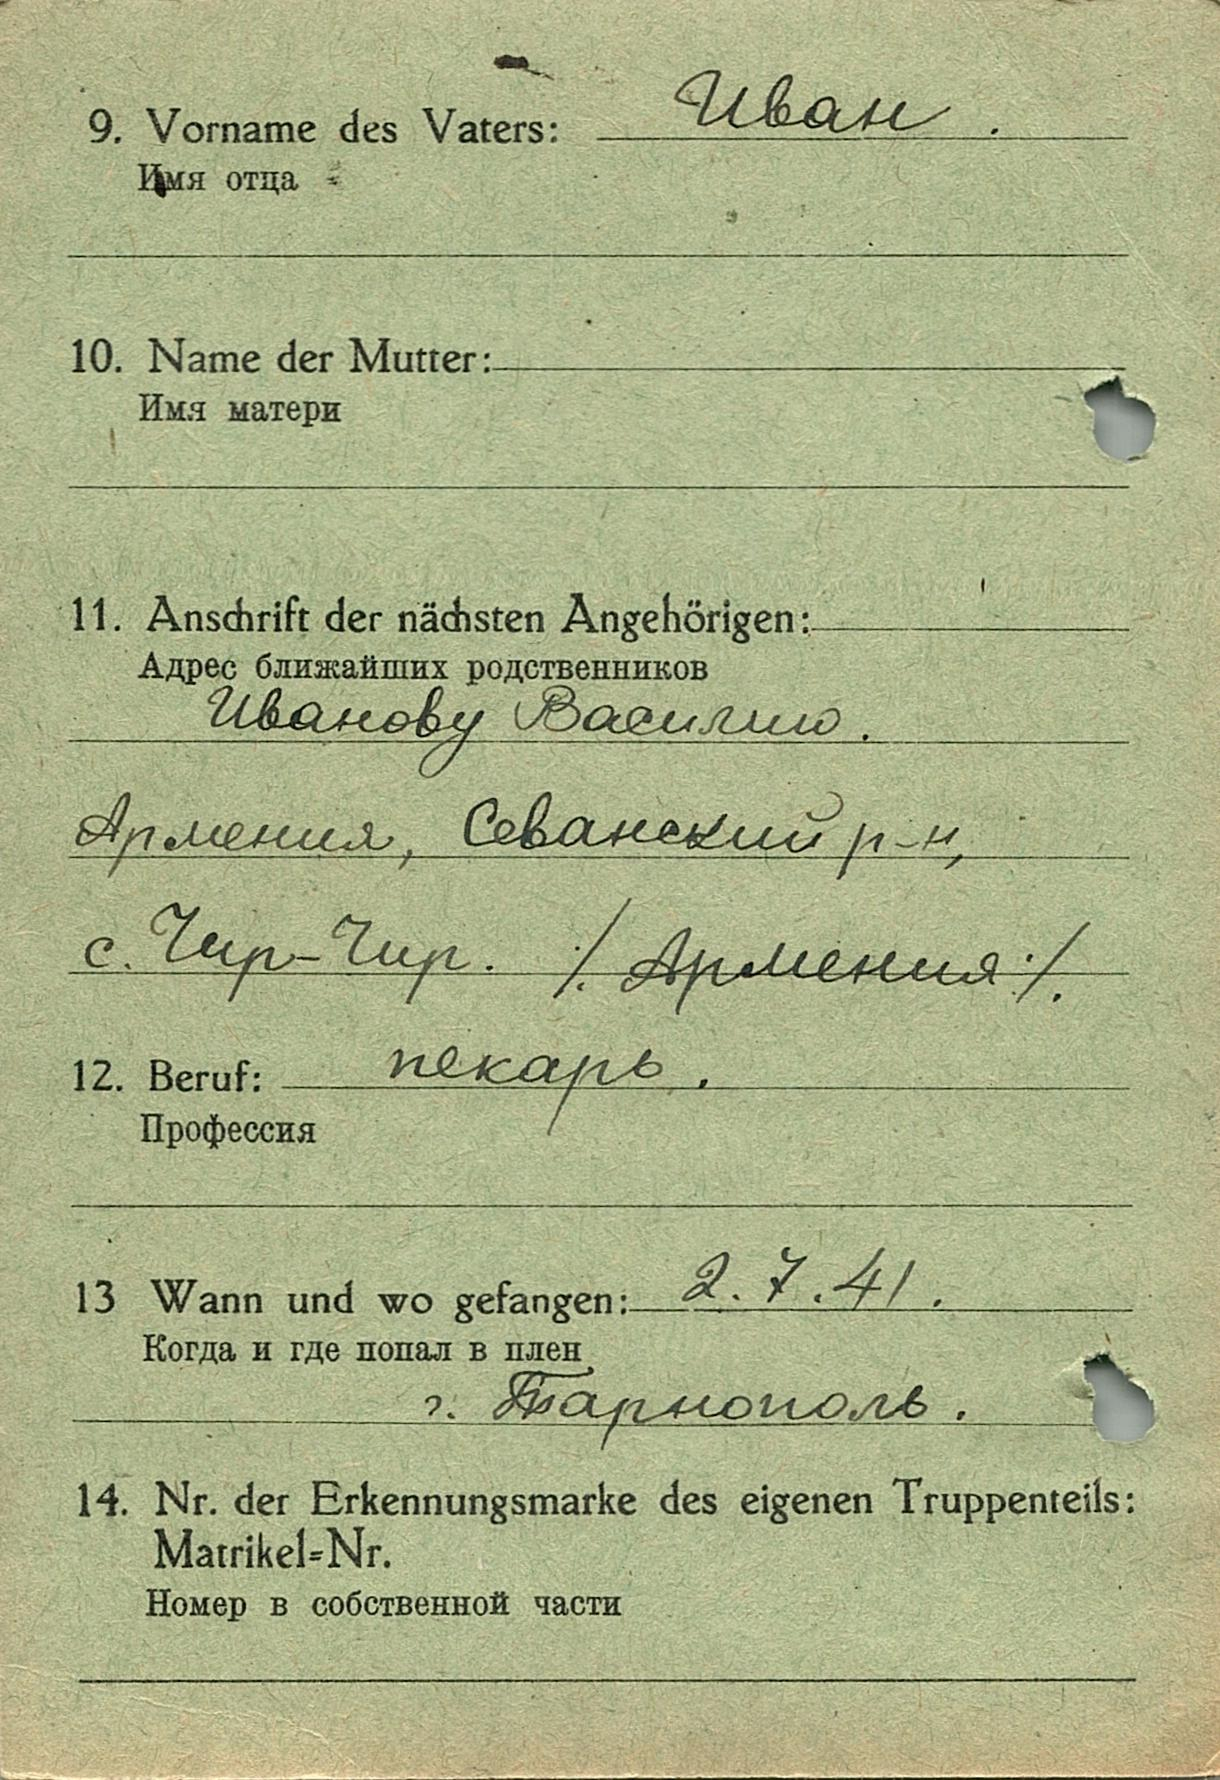 9. Vorname des Vaters: Иван .
Имя отца
10. Name der Mutter:
Имя матери
11. Anschrift der nächsten Angehörigen:
Адрес ближайших родственников
Иванову Василию.
Армения, Севанский р-н,
с. Чир-Чир. ·/. Армения ·/.
12. Beruf: пекарь.
Профессия
13 Wann und wo gefangen: 2.7.41.
Когда и где попал в плен
г. Тарнополь.
14. Nr. der Erkennungsmarke des eigenen Truppenteils:
Matrikel=Nr.
Номер в собственной части